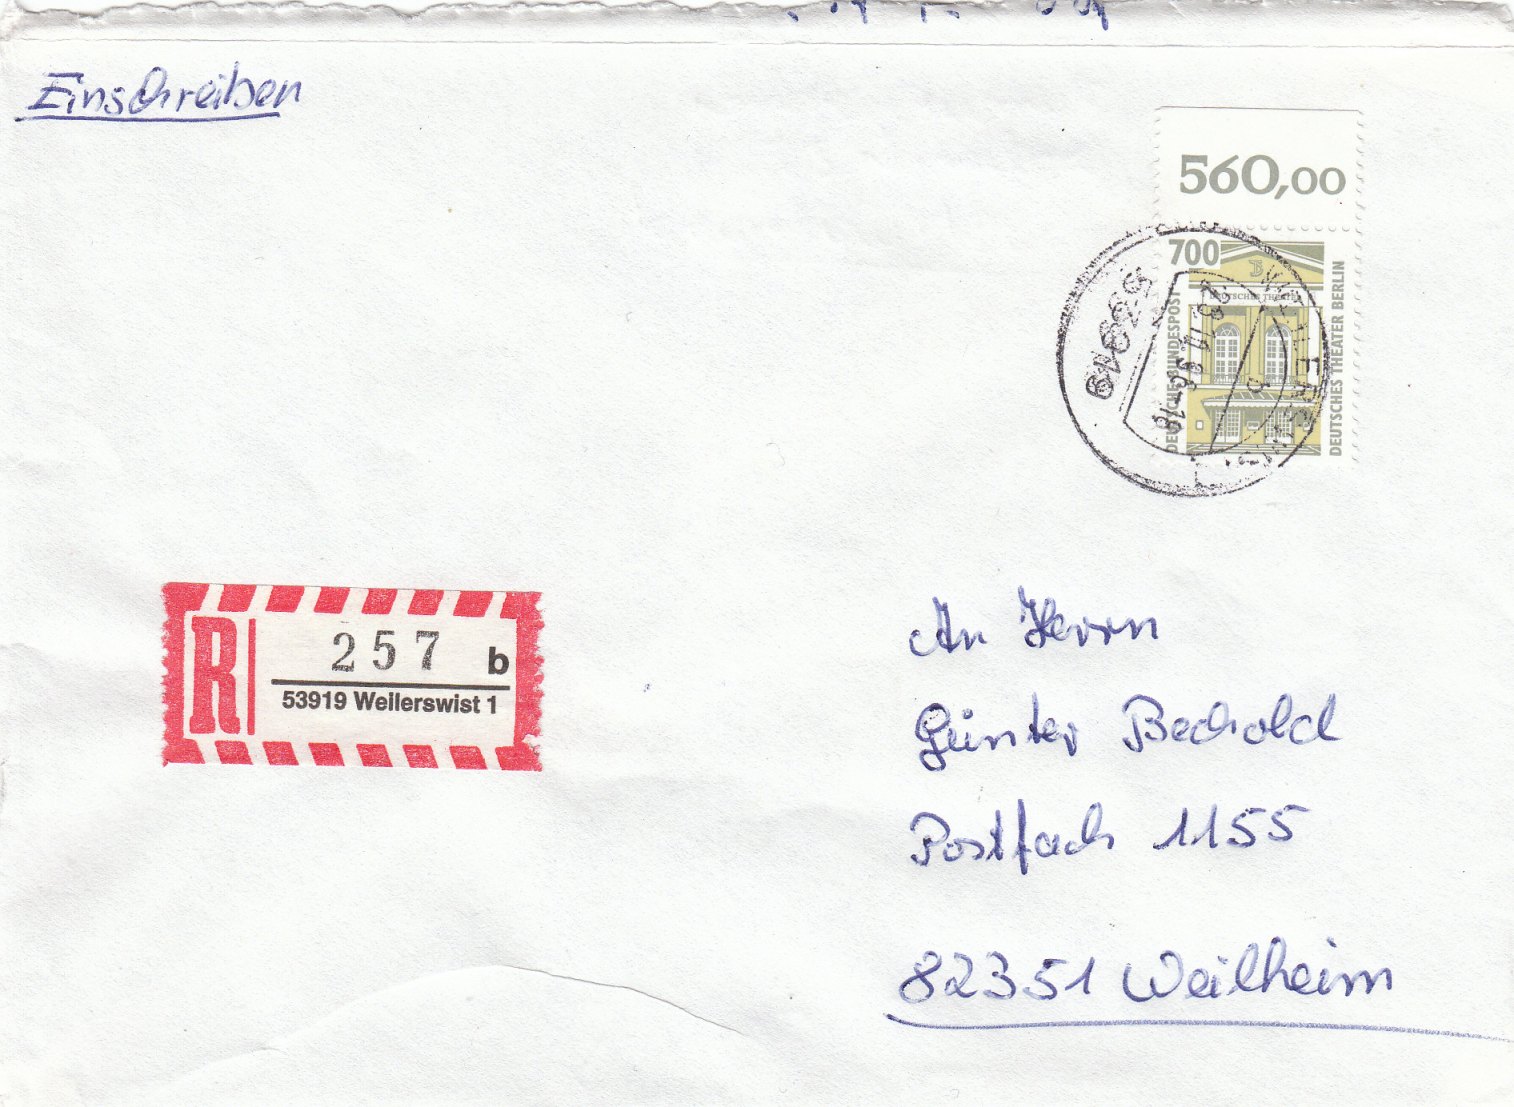 Einschreiben
560,00
700
DEUTSCHE BUNDESPOST
DEUTSCHES THEATER
DEUTSCHES THEATER BERLIN
53919
WEILERSWIST
b
-18
R
257 b
53919 Weilerswist 1
An Herrn
Günter Bechold
Postfach 1155
82351 Weilheim